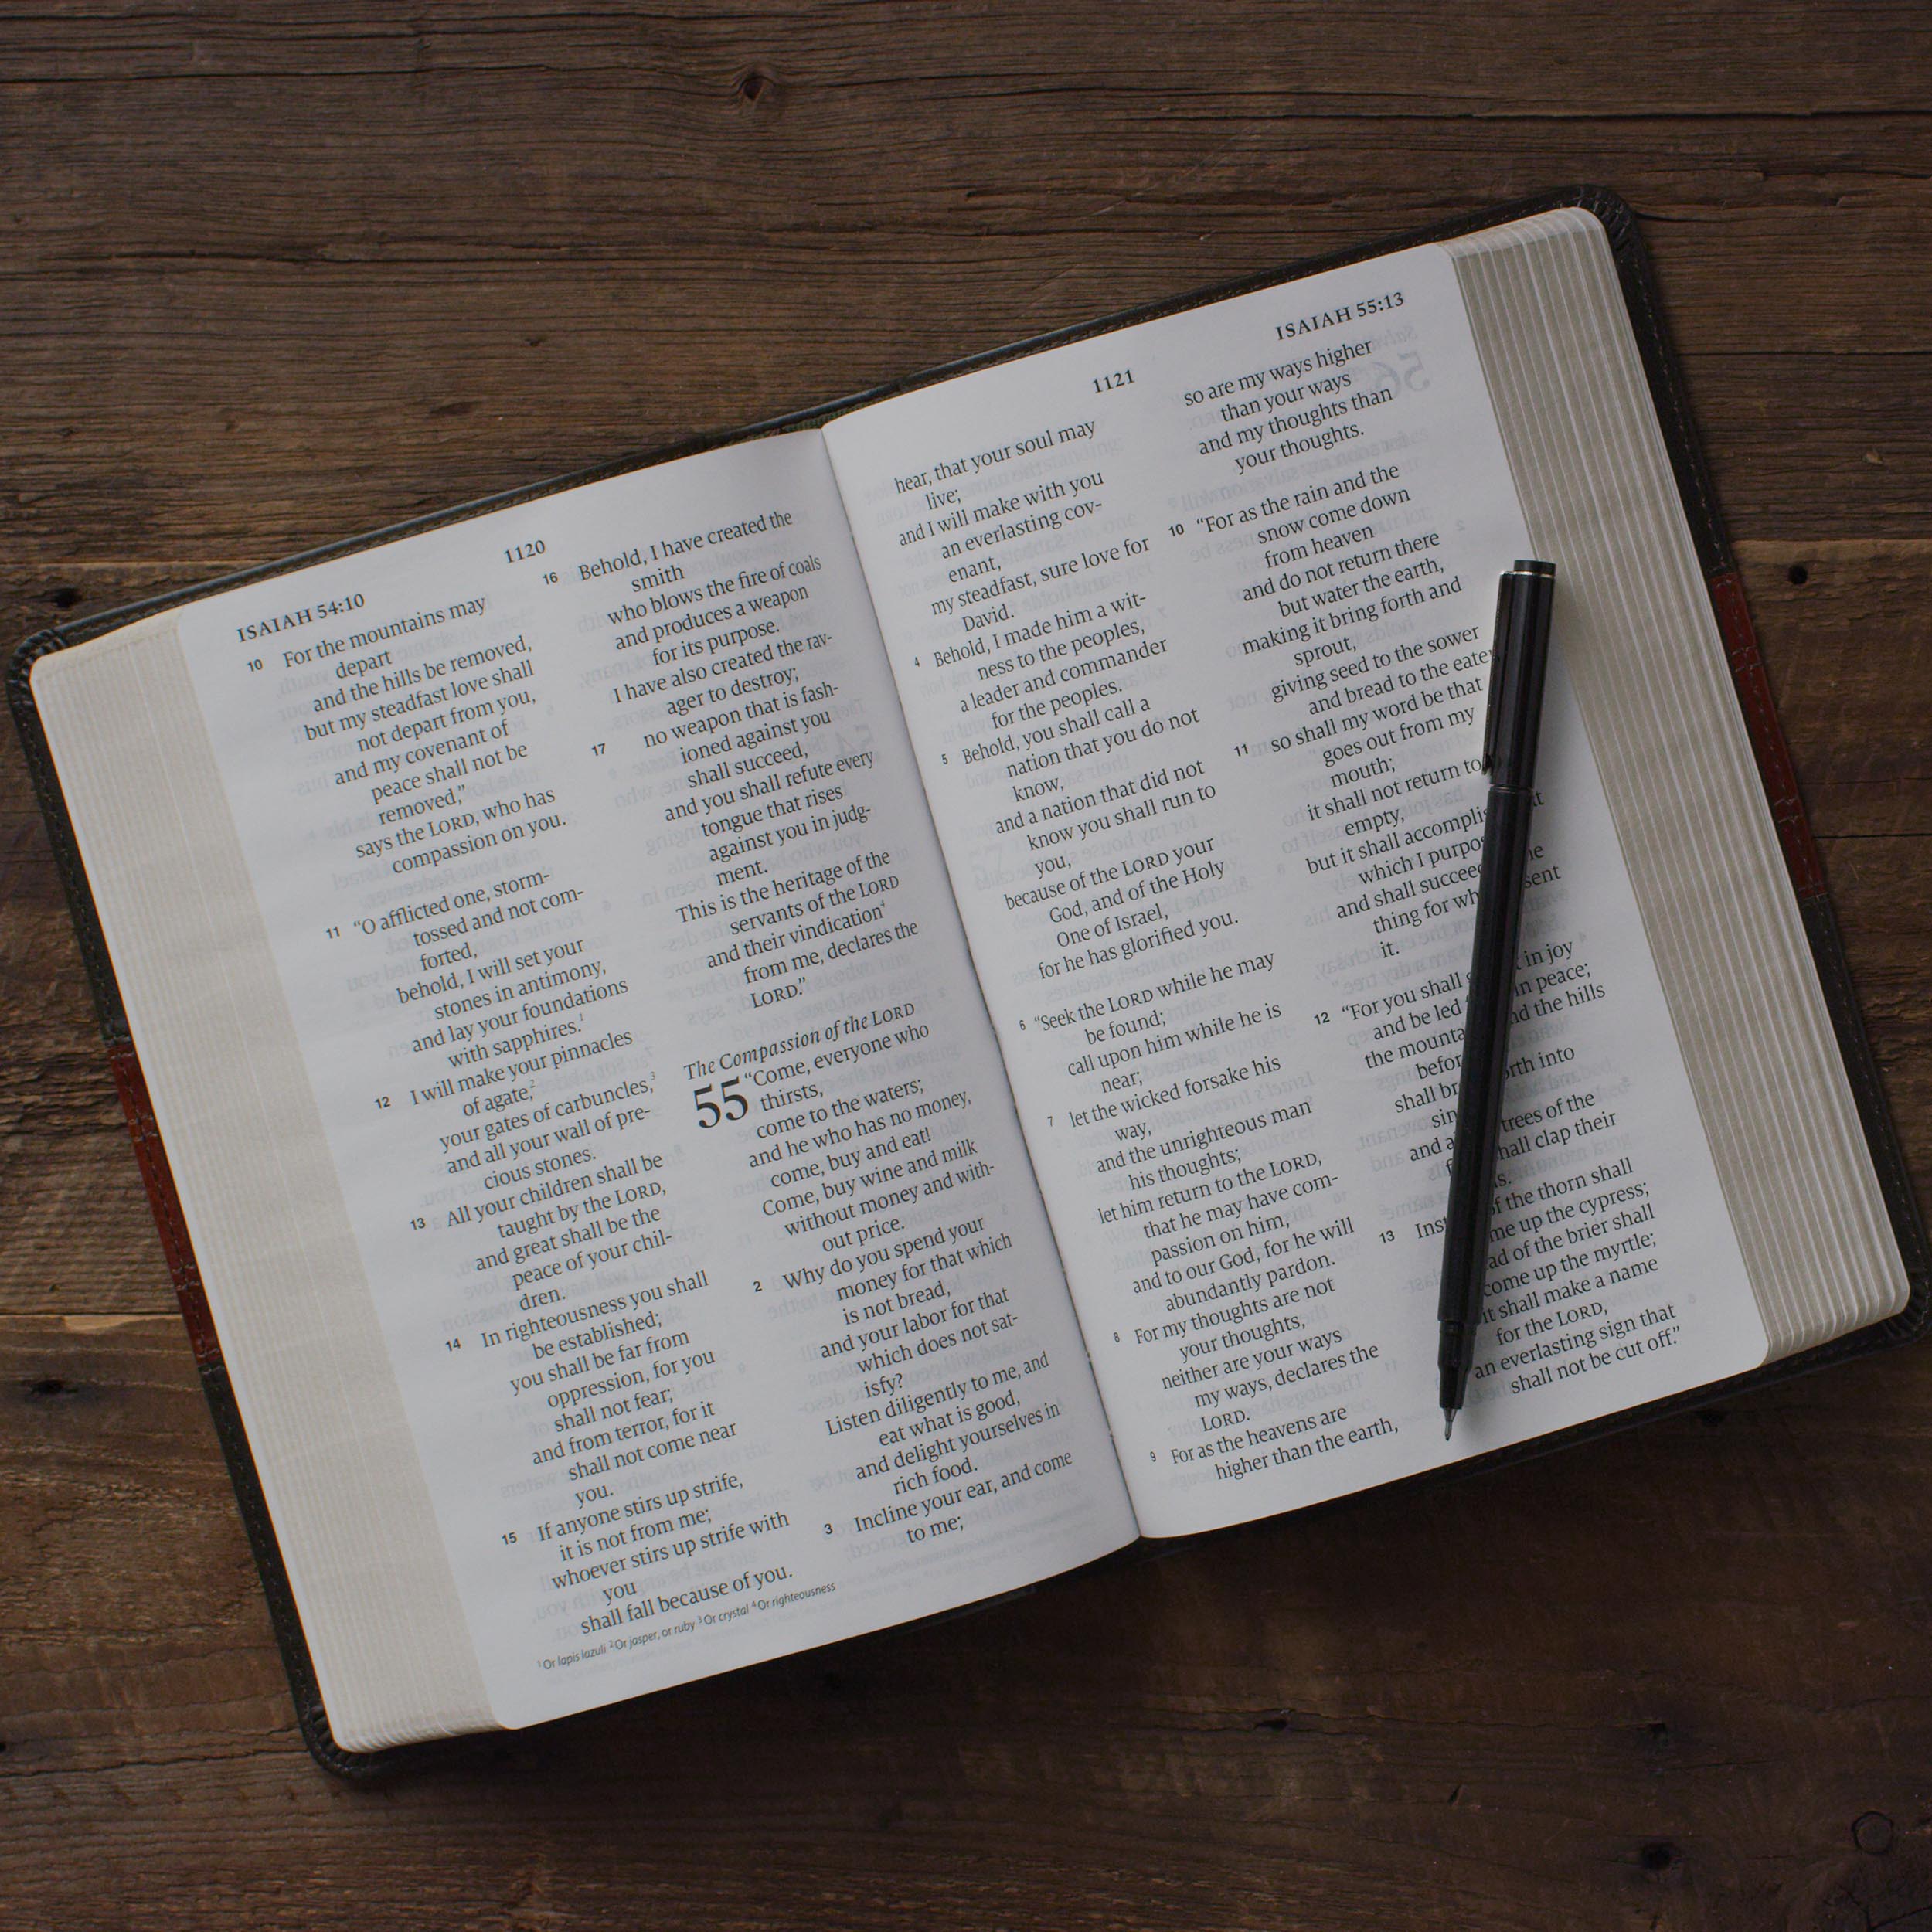 ISAIAH 54:10
1120
10 For the mountains may
depart
and the hills be removed,
but my steadfast love shall
not depart from you,
and my covenant of
peace shall not be
removed,”
says the LORD, who has
compassion on you.
11 “O afflicted one, storm-
tossed and not com-
forted,
behold, I will set your
stones in antimony,
and lay your foundations
with sapphires.1
12 I will make your pinnacles
of agate,2
your gates of carbuncles,3
and all your wall of pre-
cious stones.
13 All your children shall be
taught by the LORD,
and great shall be the
peace of your chil-
dren.
14 In righteousness you shall
be established;
you shall be far from
oppression, for you
shall not fear;
and from terror, for it
shall not come near
you.
15 If anyone stirs up strife,
it is not from me;
whoever stirs up strife with
you
shall fall because of you.
16 Behold, I have created the
smith
who blows the fire of coals
and produces a weapon
for its purpose.
I have also created the rav-
ager to destroy;
17 no weapon that is fash-
ioned against you
shall succeed,
and you shall refute every
tongue that rises
against you in judg-
ment.
This is the heritage of the
servants of the LORD
and their vindication4
from me, declares the
LORD.”
The Compassion of the LORD
55 “Come, everyone who
thirsts,
come to the waters;
and he who has no money,
come, buy and eat!
Come, buy wine and milk
without money and with-
out price.
2 Why do you spend your
money for that which
is not bread,
and your labor for that
which does not sat-
isfy?
Listen diligently to me, and
eat what is good,
and delight yourselves in
rich food.
3 Incline your ear, and come
to me;
1 Or lapis lazuli 2 Or jasper, or ruby 3 Or crystal 4 Or righteousness
1121
ISAIAH 55:13
hear, that your soul may
live;
and I will make with you
an everlasting cov-
enant,
my steadfast, sure love for
David.
4 Behold, I made him a wit-
ness to the peoples,
a leader and commander
for the peoples.
5 Behold, you shall call a
nation that you do not
know,
and a nation that did not
know you shall run to
you,
because of the LORD your
God, and of the Holy
One of Israel,
for he has glorified you.
6 “Seek the LORD while he may
be found;
call upon him while he is
near;
7 let the wicked forsake his
way,
and the unrighteous man
his thoughts;
let him return to the LORD,
that he may have com-
passion on him,
and to our God, for he will
abundantly pardon.
8 For my thoughts are not
your thoughts,
neither are your ways
my ways, declares the
LORD.
9 For as the heavens are
higher than the earth,
so are my ways higher
than your ways
and my thoughts than
your thoughts.
10 “For as the rain and the
snow come down
from heaven
and do not return there
but water the earth,
making it bring forth and
sprout,
giving seed to the sower
and bread to the eater,
11 so shall my word be that
goes out from my
mouth;
it shall not return to
empty,
but it shall
which I
and shall
thing for sent
it.
12 “For you shall in joy
and be led in peace;
the the hills
shall forth into
and trees of the
shall clap their
13 of the thorn shall
up the cypress;
of the brier shall
come up the myrtle;
it shall make a name
for the LORD,
an everlasting sign that
shall not be cut off.”